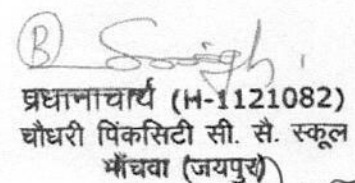 B Singh
प्रधानाचार्य (H-1121082)
चौधरी पिंकसिटी सी. सै. स्कूल
माँचवा (जयपुर)